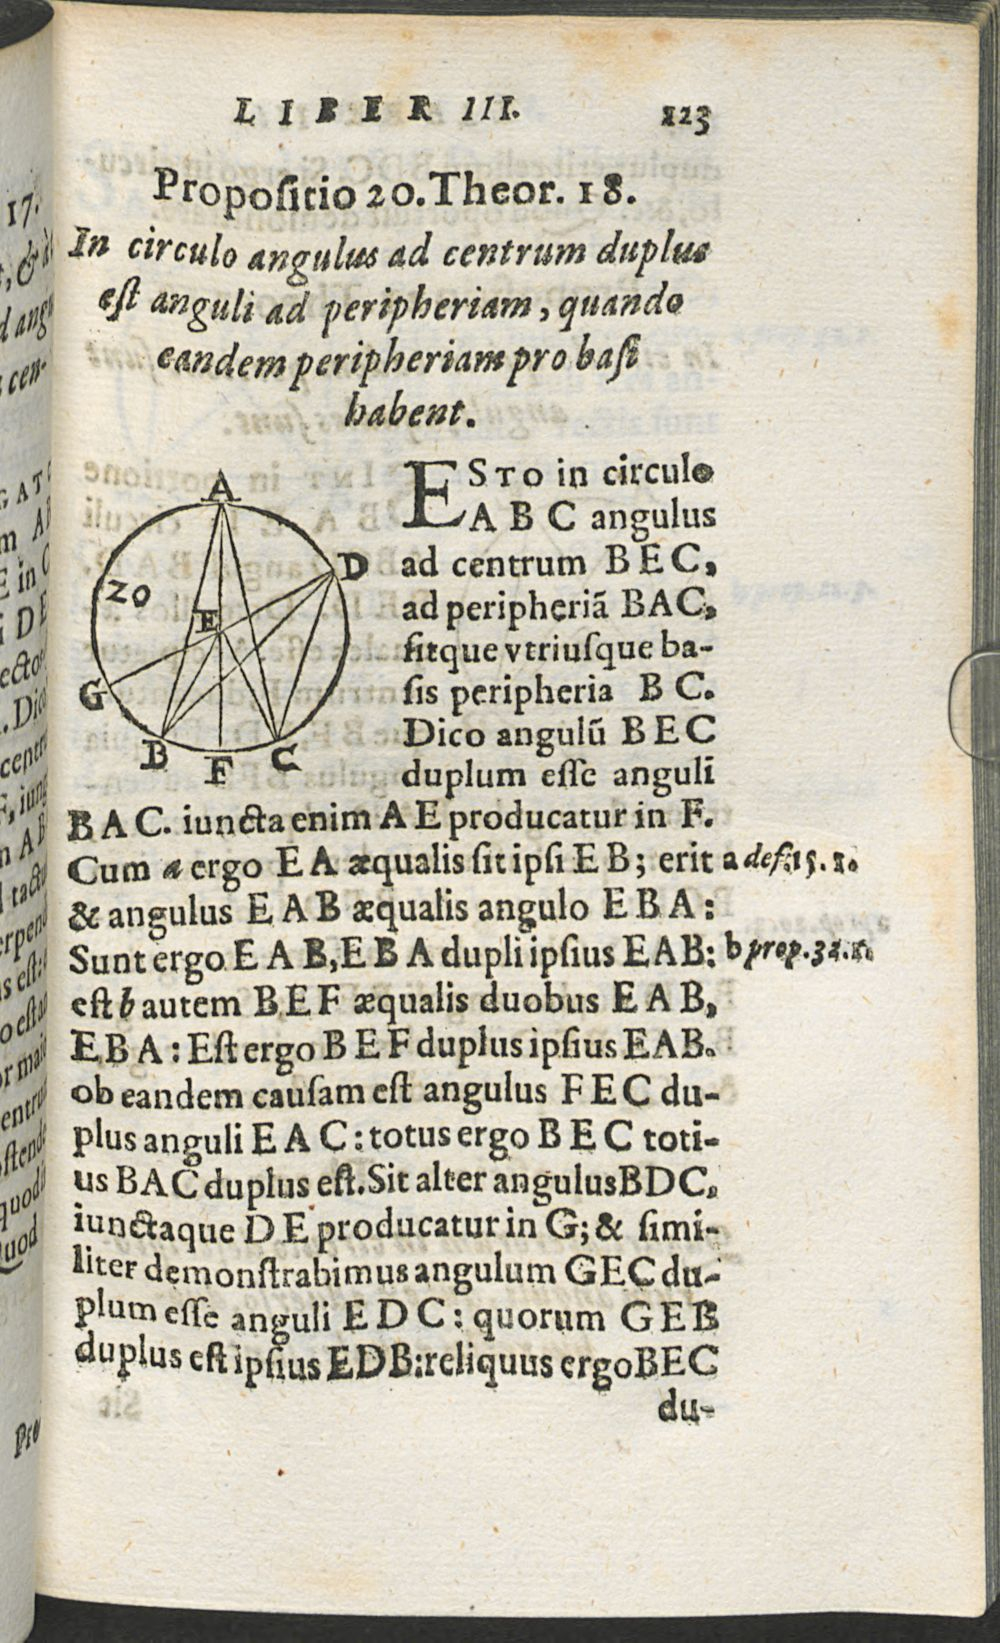 LIBER III. 123
Propoſitio 20. Theor. 18.
In circulo angulus ad centrum duplus
eſt anguli ad peripheriam, quando
eandem peripheriam pro baſi
habent.
ESTO in circulo
A B C angulus
ad centrum B E C,
ad peripheriã BAC,
ſitque vtriuſque ba-
ſis peripheria B C.
Dico angulũ B E C
duplum eſſe anguli
A
D
20
E
G
B
F
C
B A C. iuncta enim A E producatur in F.
Cum a ergo E A æqualis ſit ipſi E B; erit a def.15.1.
& angulus E A B æqualis angulo E B A:
Sunt ergo E A B, E B A dupli ipſius EAB: b prop.32.1.
eſt b autem B E F æqualis duobus E A B,
E B A: Eſt ergo B E F duplus ipſius EAB.
ob eandem cauſam eſt angulus F E C du-
plus anguli E A C: totus ergo B E C toti-
us BAC duplus eſt. Sit alter angulus BDC,
iunctaque D E producatur in G; & ſimi-
liter demonſtrabimus angulum GEC du-
plum eſſe anguli E D C: quorum G E B
duplus eſt ipſius EDB: reliquus ergo BEC
du-